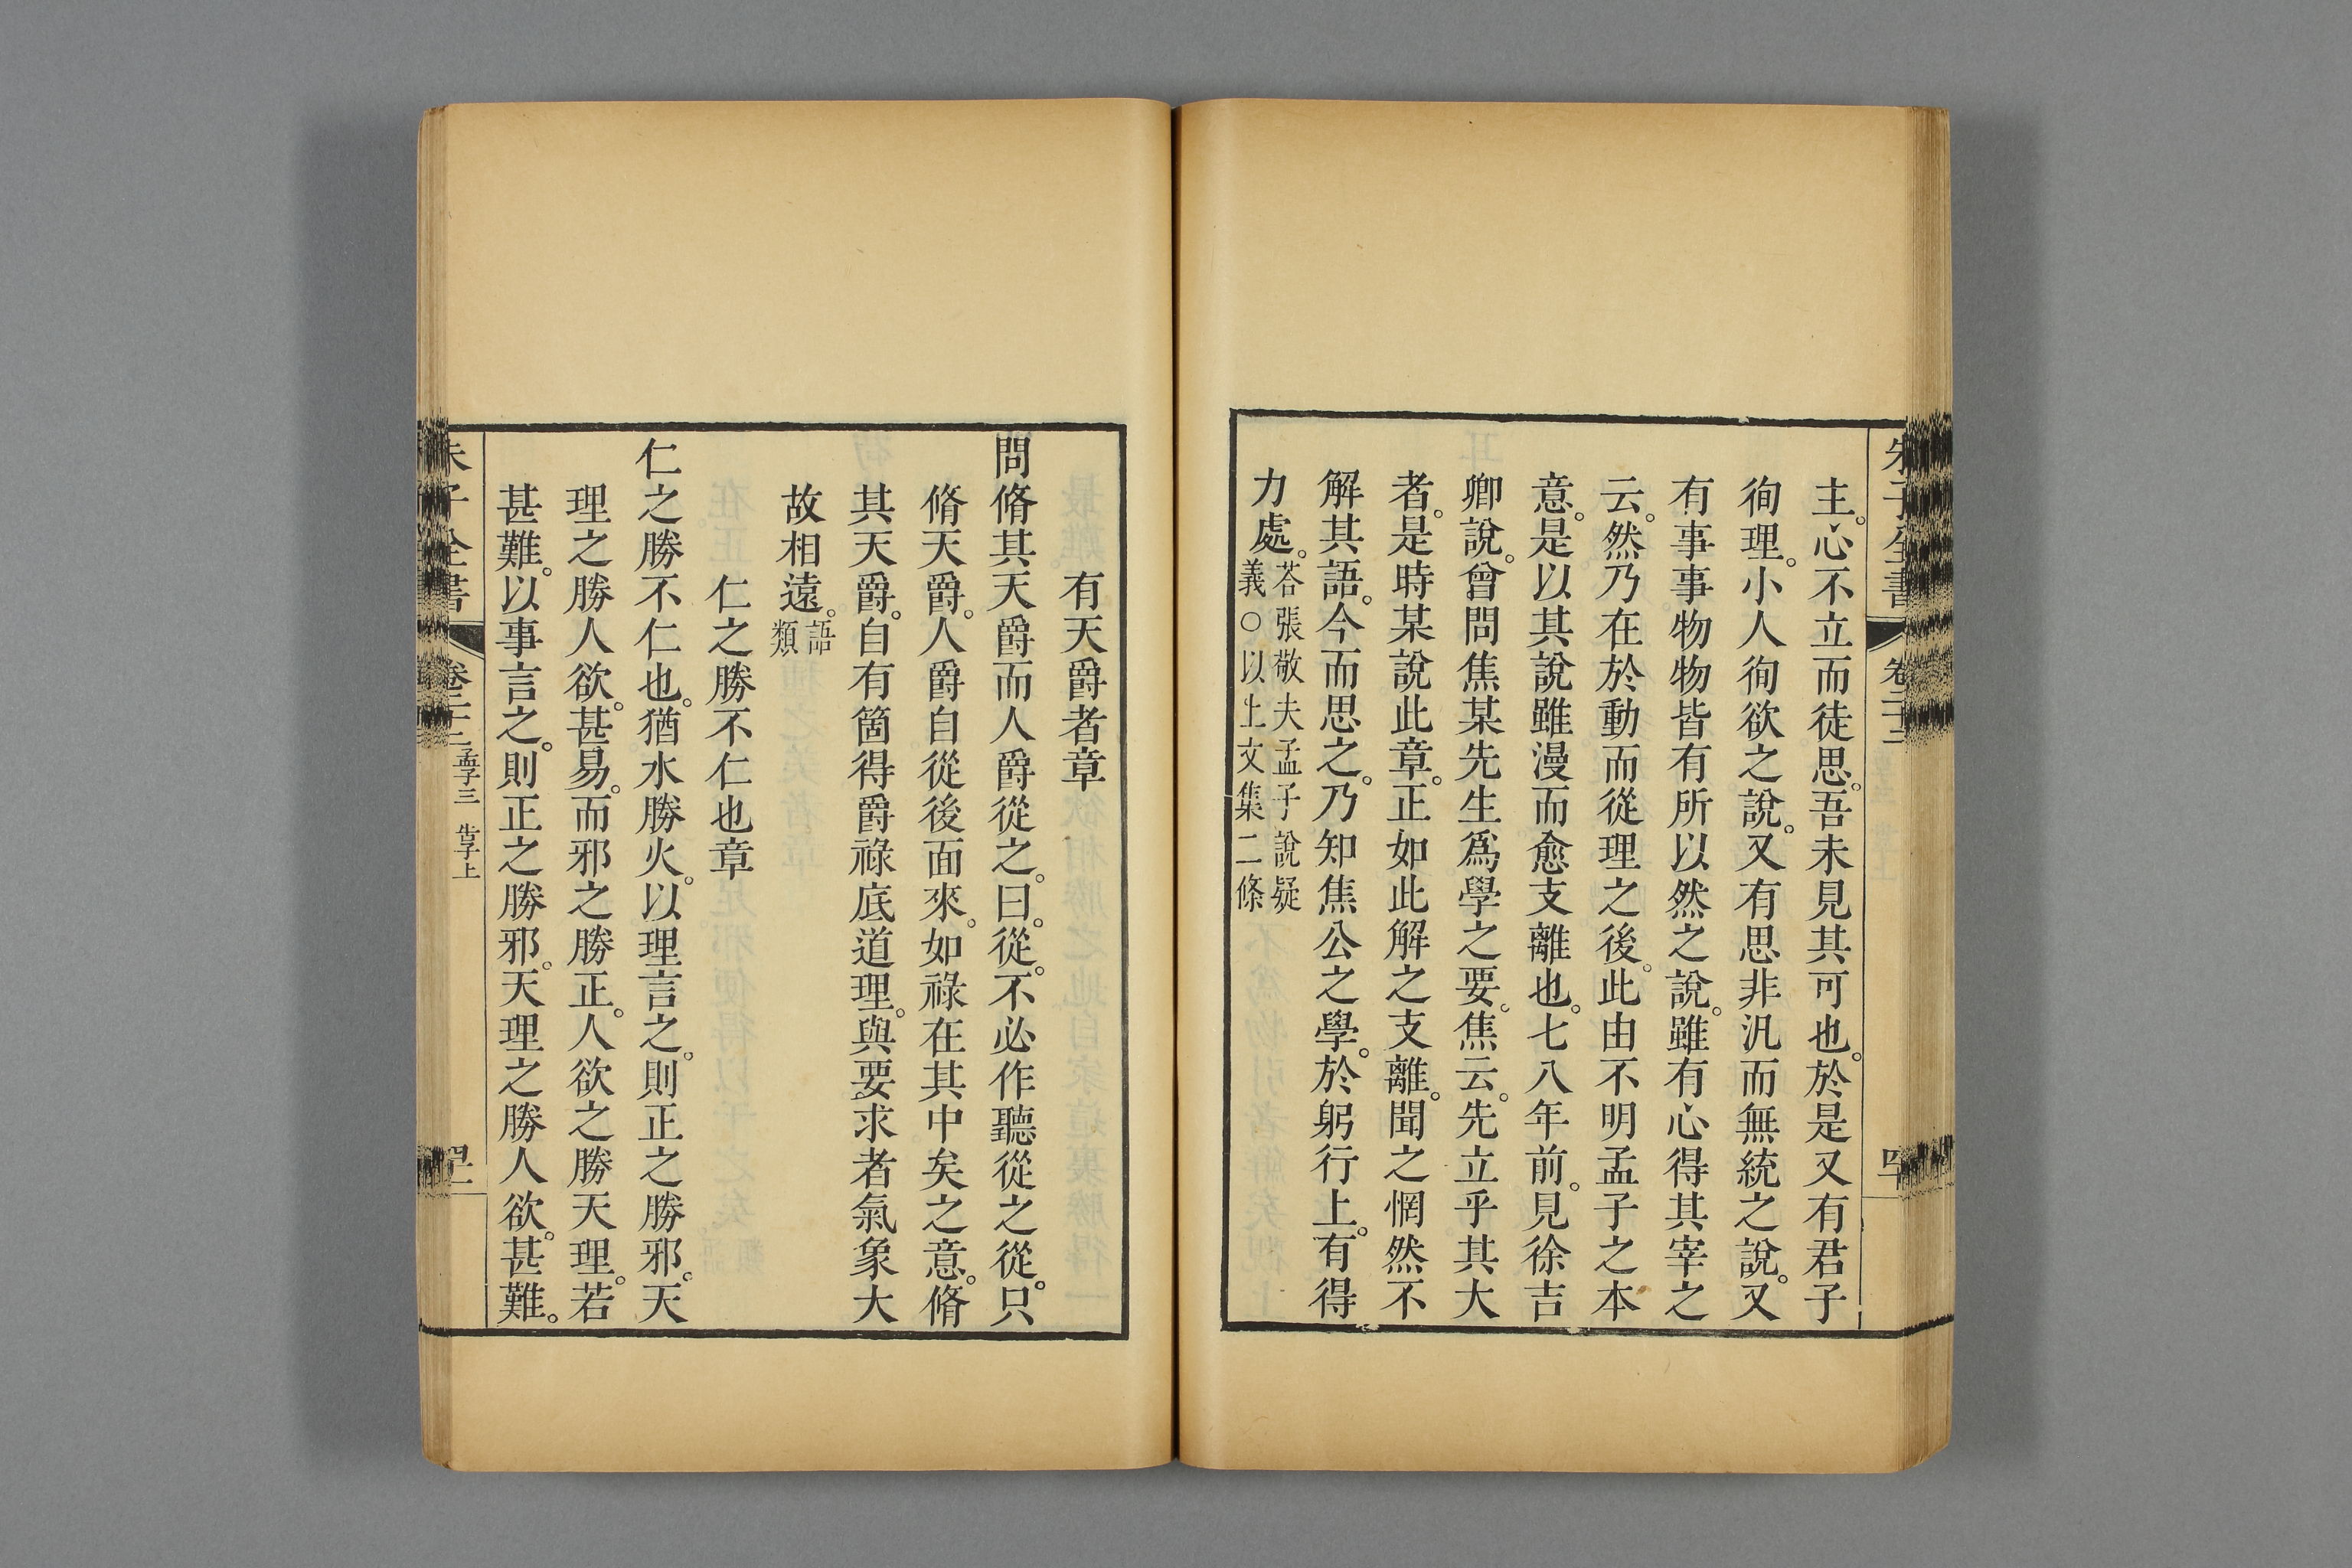 朱子全書 卷二十二 四十
主。心不立而徒思。吾未見其可也。於是又有君子
徇理。小人徇欲之說。又有思非汎而無統之說。又
有事事物物皆有所以然之說。雖有心得其宰之
云。然乃在於動而從理之後。此由不明孟子之本
意。是以其說雖漫而愈支離也。七八年前。見徐吉
卿說。曾問焦某先生爲學之要。焦云。先立乎其大
者。是時某說此章。正如此解之支離。聞之惘然不
解其語。今而思之。乃知焦公之學。於躬行上。有得
力處。
荅張敬夫孟子說疑
義○以上文集二條
有天爵者章
問脩其天爵而人爵從之。曰。從。不必作聽從之從。只
脩天爵。人爵自從後面來。如祿在其中矣之意。脩
其天爵。自有箇得爵祿底道理。與要求者氣象大
故相遠。
語
類
仁之勝不仁也章
仁之勝不仁也。猶水勝火。以理言之。則正之勝邪。天
理之勝人欲。甚易。而邪之勝正。人欲之勝天理。若
甚難。以事言之。則正之勝邪。天理之勝人欲。甚難。
朱子全書 卷二十二 孟子三 告子上